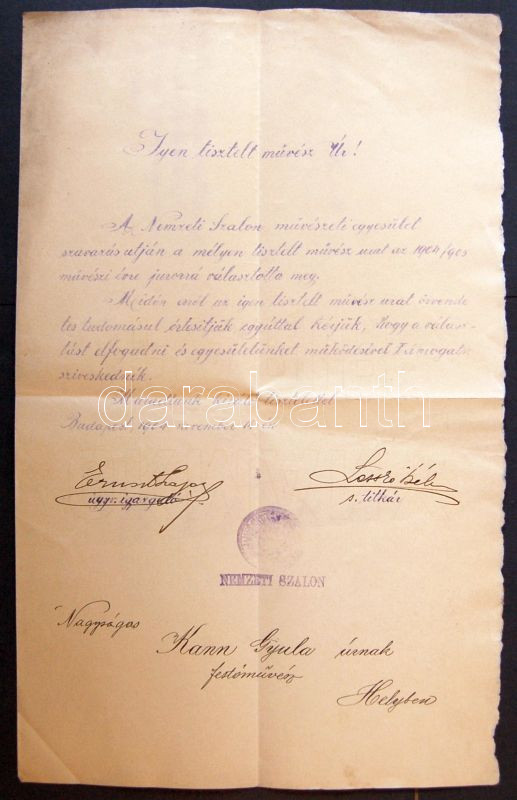 Igen tisztelt művész Úr!
A Nemzeti Szalon művészeti egyesület
szavazás utján a mélyen tisztelt művész urat az 1904/905
művészi évre jurorrá választotta meg.
Midőn erről az igen tisztelt művész urat örvende
tes tudomásul értesitjük egyúttal kérjük, hogy a válasz-
tást elfogadni és egyesületünket működésével támogatni
sziveskedjék.
Maradtunk kiváló tisztelettel
Budapest, 1904 november
Ernst Lajos
ügyv. igazgató
László Béla
s. titkár
NEMZETI SZALON
Nagyságos
Kann Gyula úrnak
festőművész
Helyben
darabanth